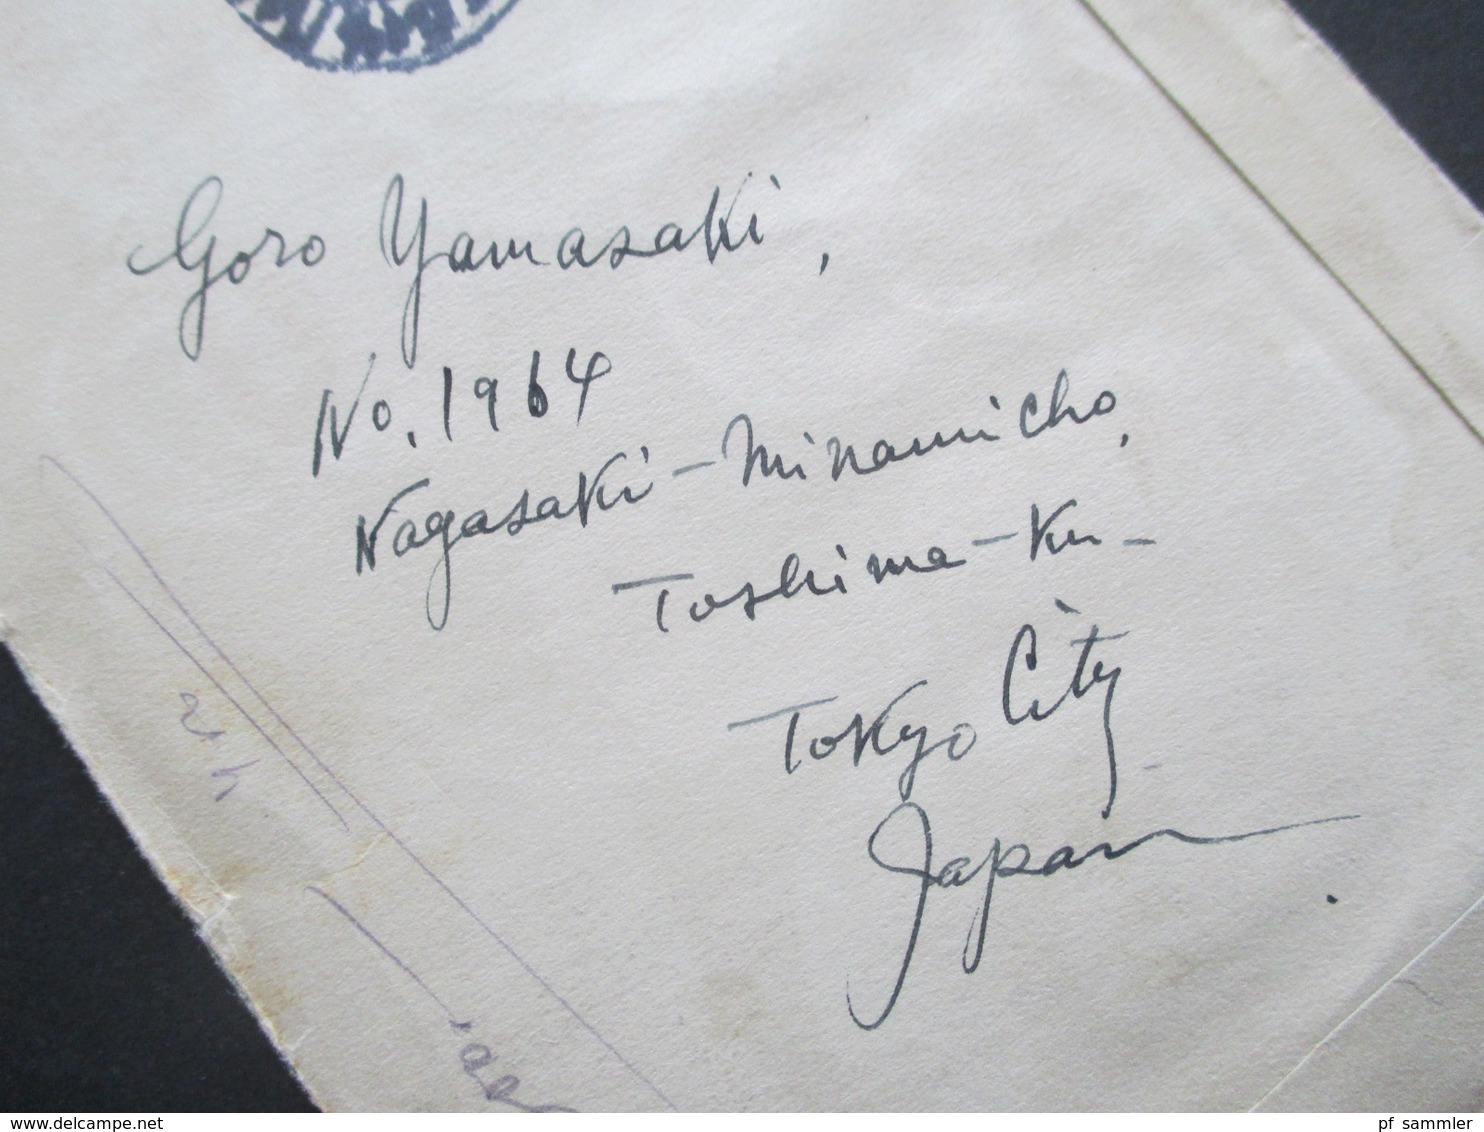 Goro Yamasaki,
No. 1964
Nagasaki-Minamicho,
Toshima-Ku-
Tokyo City
Japan
delcampe.net
pf_sammler